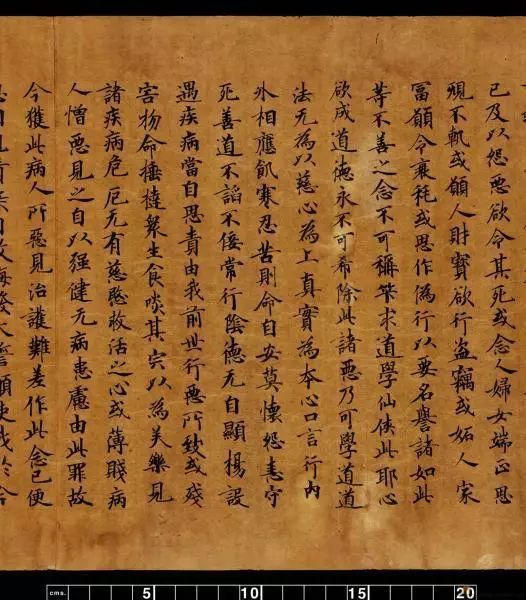 已及以怨惡欲令其死或念人婦女端正思
現不軌或願人財寶欲行盜竊或妬人家
冨願令衰耗或思作偽行以要名譽諸如此
等不善之念不可稱筭求道學仙侠此耶心
欲成道德永不可希除此諸惡乃可學道道
法无為以慈心為上真實為本心口言行内
外相應飢寒忍苦則命自安莫懷怨恚守
死善道不謟不佞常行陰德无自顯揚設
遇疾病當自思責由我前世行惡所致或殘
害物命捶撻衆生食啖其宍以為美樂見
諸疾病危厄无有慈愍救活之心或薄賤病
人憎惡見之自以强健无病患慮由此罪故
今獲此病人所惡見治護難差作此念已便
悔發大誓願使我
cms. 5 10 15 20